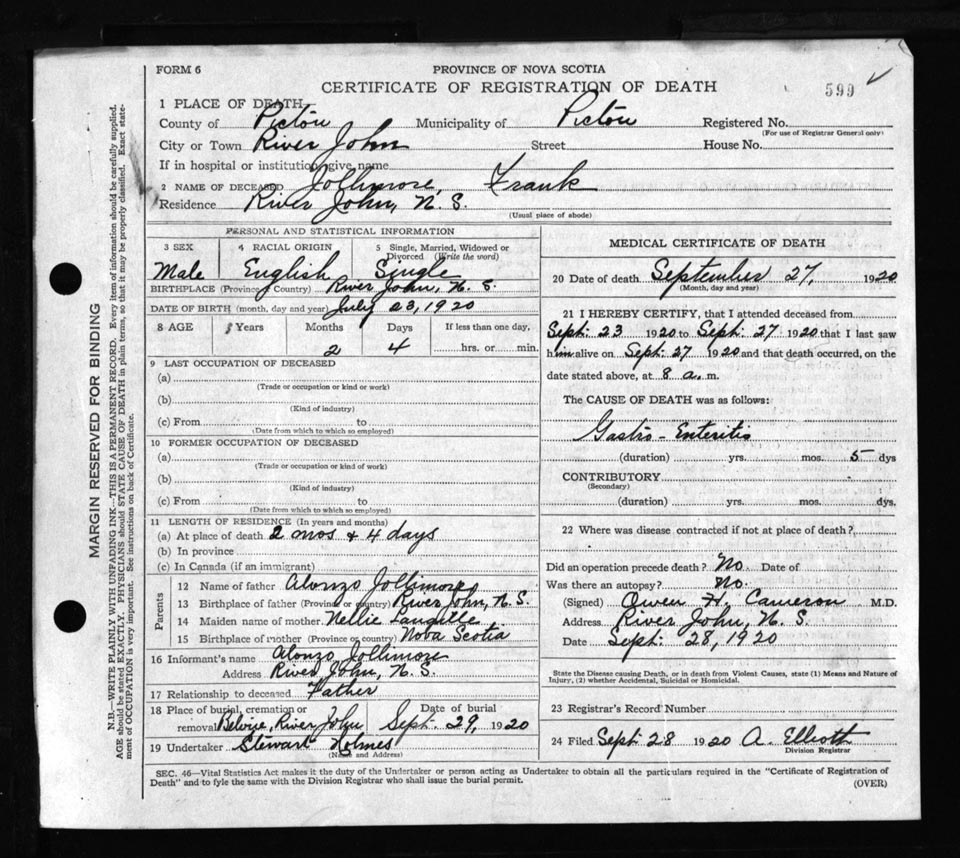 FORM 6
PROVINCE OF NOVA SCOTIA
CERTIFICATE OF REGISTRATION OF DEATH
599
1 PLACE OF DEATH
County of Pictou Municipality of Pictou Registered No.
(For use of Registrar General only)
City or Town River John Street House No.
If in hospital or institution, give name
2 NAME OF DECEASED Jollimore, Frank
Residence River John, N. S.
(Usual place of abode)
PERSONAL AND STATISTICAL INFORMATION
3 SEX 4 RACIAL ORIGIN 5 Single, Married, Widowed or Divorced (Write the word)
Male English Single
BIRTHPLACE (Province or Country) River John, N. S.
DATE OF BIRTH (month, day and year) July 23, 1920
8 AGE Years Months Days If less than one day,
2 4 hrs. or min.
9 LAST OCCUPATION OF DECEASED
(a)
(Trade or occupation or kind or work)
(b)
(Kind of industry)
(c) From to
(Date from which to which so employed)
10 FORMER OCCUPATION OF DECEASED
(a)
(Trade or occupation or kind of work)
(b)
(Kind of industry)
(c) From to
(Date from which to which so employed)
11 LENGTH OF RESIDENCE (In years and months)
(a) At place of death 2 mos & 4 days
(b) In province
(c) In Canada (if an immigrant)
Parents
12 Name of father Alonzo Jollimore
13 Birthplace of father (Province or country) River John, N. S.
14 Maiden name of mother Nellie Langille
15 Birthplace of mother (Province or country) Nova Scotia
16 Informant's name Alonzo Jollimore
Address River John, N. S.
17 Relationship to deceased Father
18 Place of burial, cremation or removal River John
Date of burial Sept. 29, 1920
19 Undertaker Stewart Holmes
(Name and Address)
MEDICAL CERTIFICATE OF DEATH
20 Date of death September 27, 1920
(Month, day and year)
21 I HEREBY CERTIFY, that I attended deceased from
Sept: 23 1920 to Sept: 27 1920 that I last saw
him alive on Sept: 27 1920 and that death occurred, on the
date stated above, at 8 a. m.
The CAUSE OF DEATH was as follows:
Gastro-Enteritis
(duration) yrs. mos. 5 dys
CONTRIBUTORY
(Secondary)
(duration) yrs. mos. dys.
22 Where was disease contracted if not at place of death?
Did an operation precede death? No. Date of
Was there an autopsy? No.
(Signed) Owen H. Cameron M.D.
Address River John, N. S.
Date Sept: 28, 1920
State the Disease causing Death, or in death from Violent Causes, state (1) Means and Nature of
Injury, (2) whether Accidental, Suicidal or Homicidal.
23 Registrar's Record Number
24 Filed Sept 28 1920 A. Elliott
Division Registrar
SEC. 46—Vital Statistics Act makes it the duty of the Undertaker or person acting as Undertaker to obtain all the particulars required in the "Certificate of Registration of
Death" and to fyle the same with the Division Registrar who shall issue the burial permit.
(OVER)
MARGIN RESERVED FOR BINDING
N.B.—WRITE PLAINLY WITH UNFADING INK—THIS IS A PERMANENT RECORD. Every item of information should be carefully supplied.
AGE should be stated EXACTLY. PHYSICIANS should STATE CAUSE OF DEATH in plain terms, so that it may be properly classified. Exact state-
ment of OCCUPATION is very important. See instructions on back of Certificate.